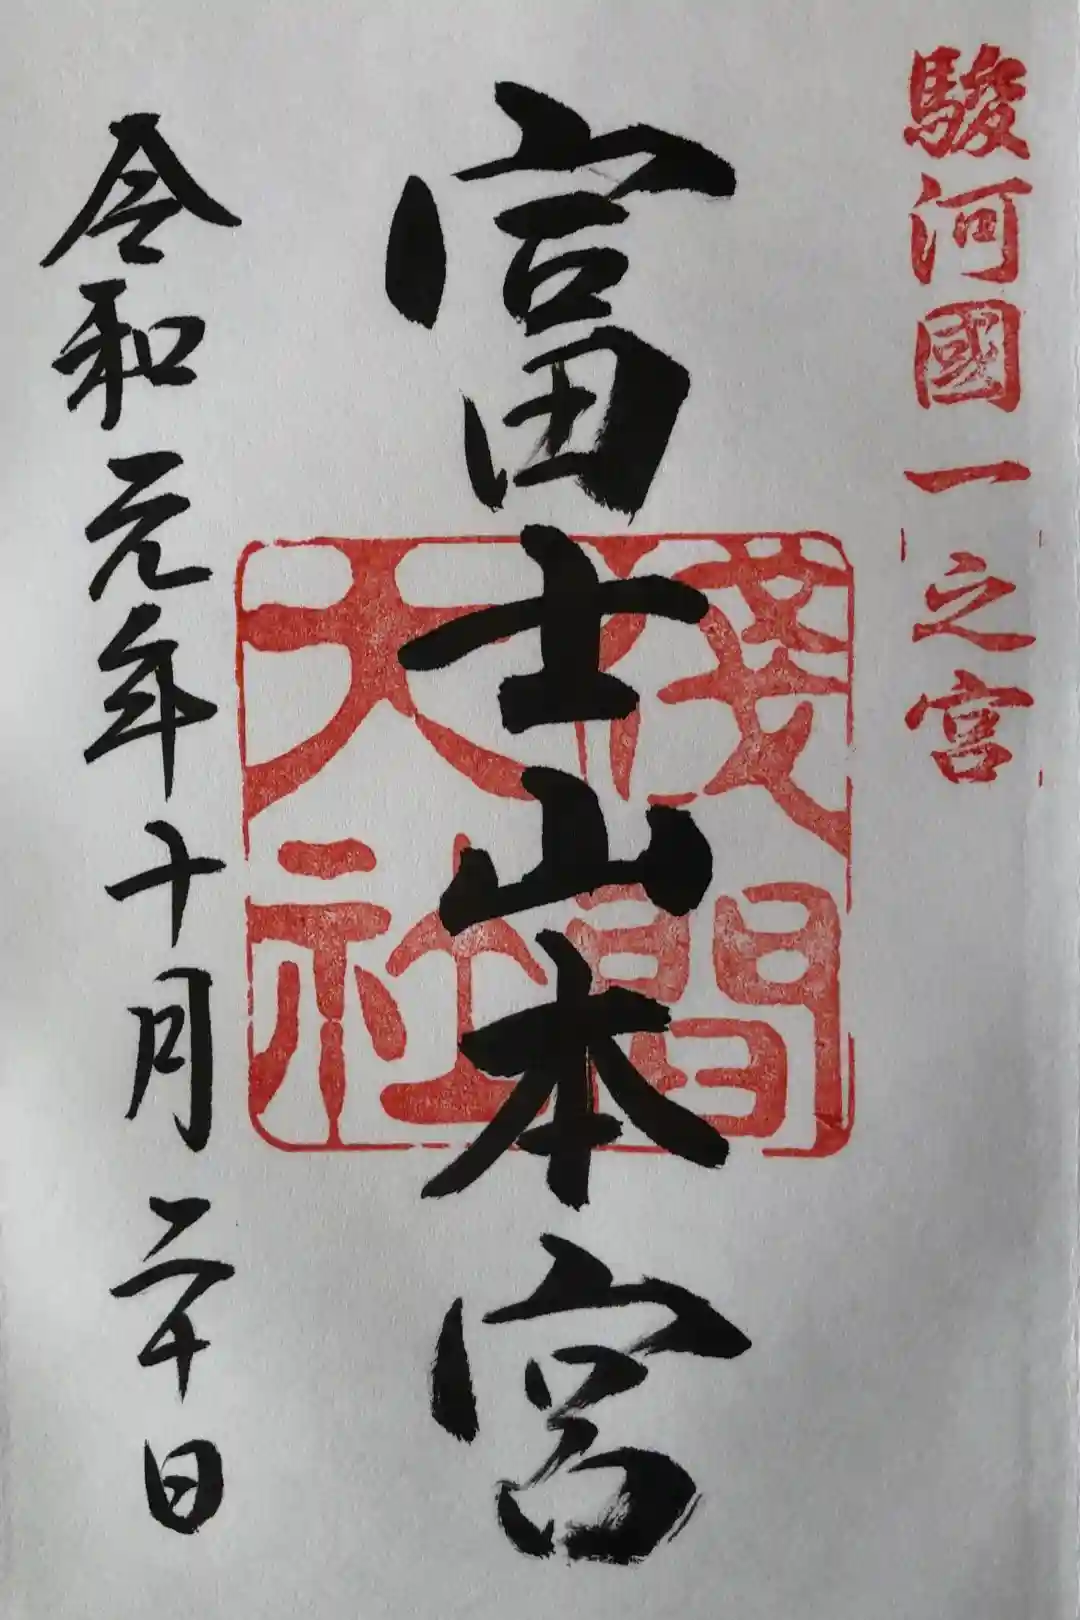 駿河國一之宮
富士山本宮
淺間大社
令和元年十月二十日